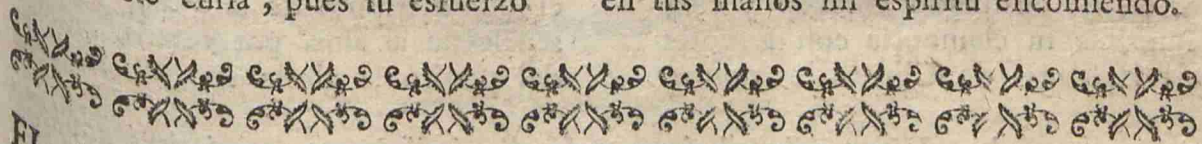 curla, pues tu esfuerzo
en tus manos mi espiritu encomiendo.
El